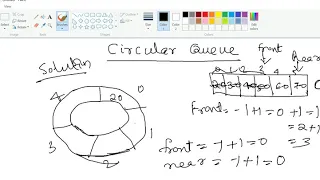 Circular Queue
Solution
Front
Rear
0 1 2 3 4 5
20 30 60 70
4 20 0
3 1
2
Front = -1+1=0+1=1
=2+1
=3
front = -1+1=0
rear = -1+1=0